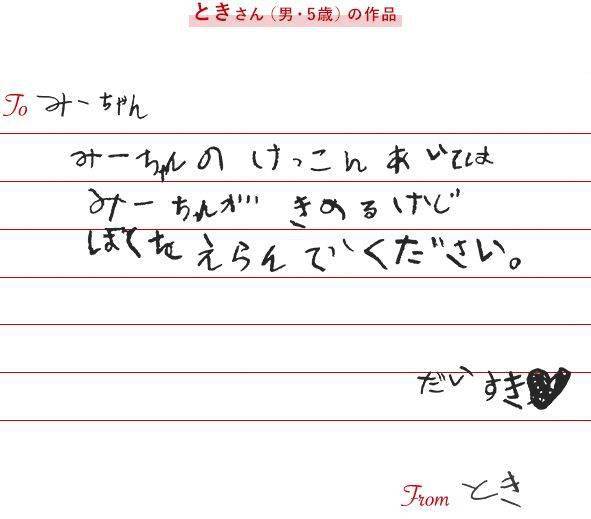 ときさん（男・5歳）の作品
To みーちゃん
みーちゃんの けっこん あいては
みーちゃんが きめるけど
ぼくを えらんでください。
だいすき♥
From とき